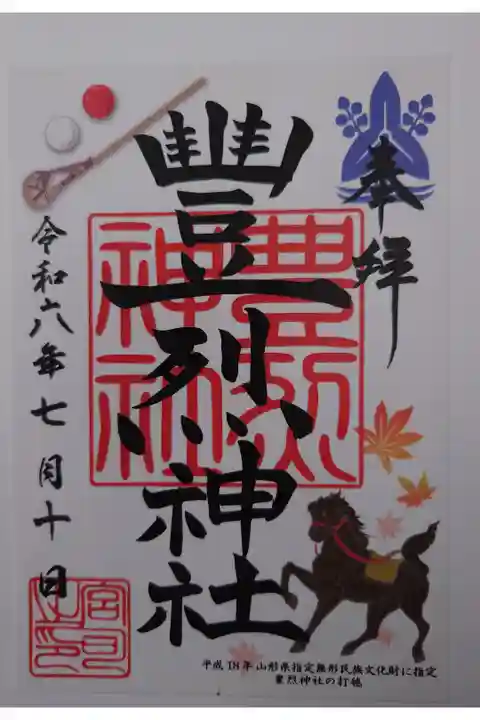 奉拝
豐烈神社
豊烈神社
令和六年七月十日
宮司之印
平成18年山形県指定無形民族文化財に指定
豊烈神社の打毬